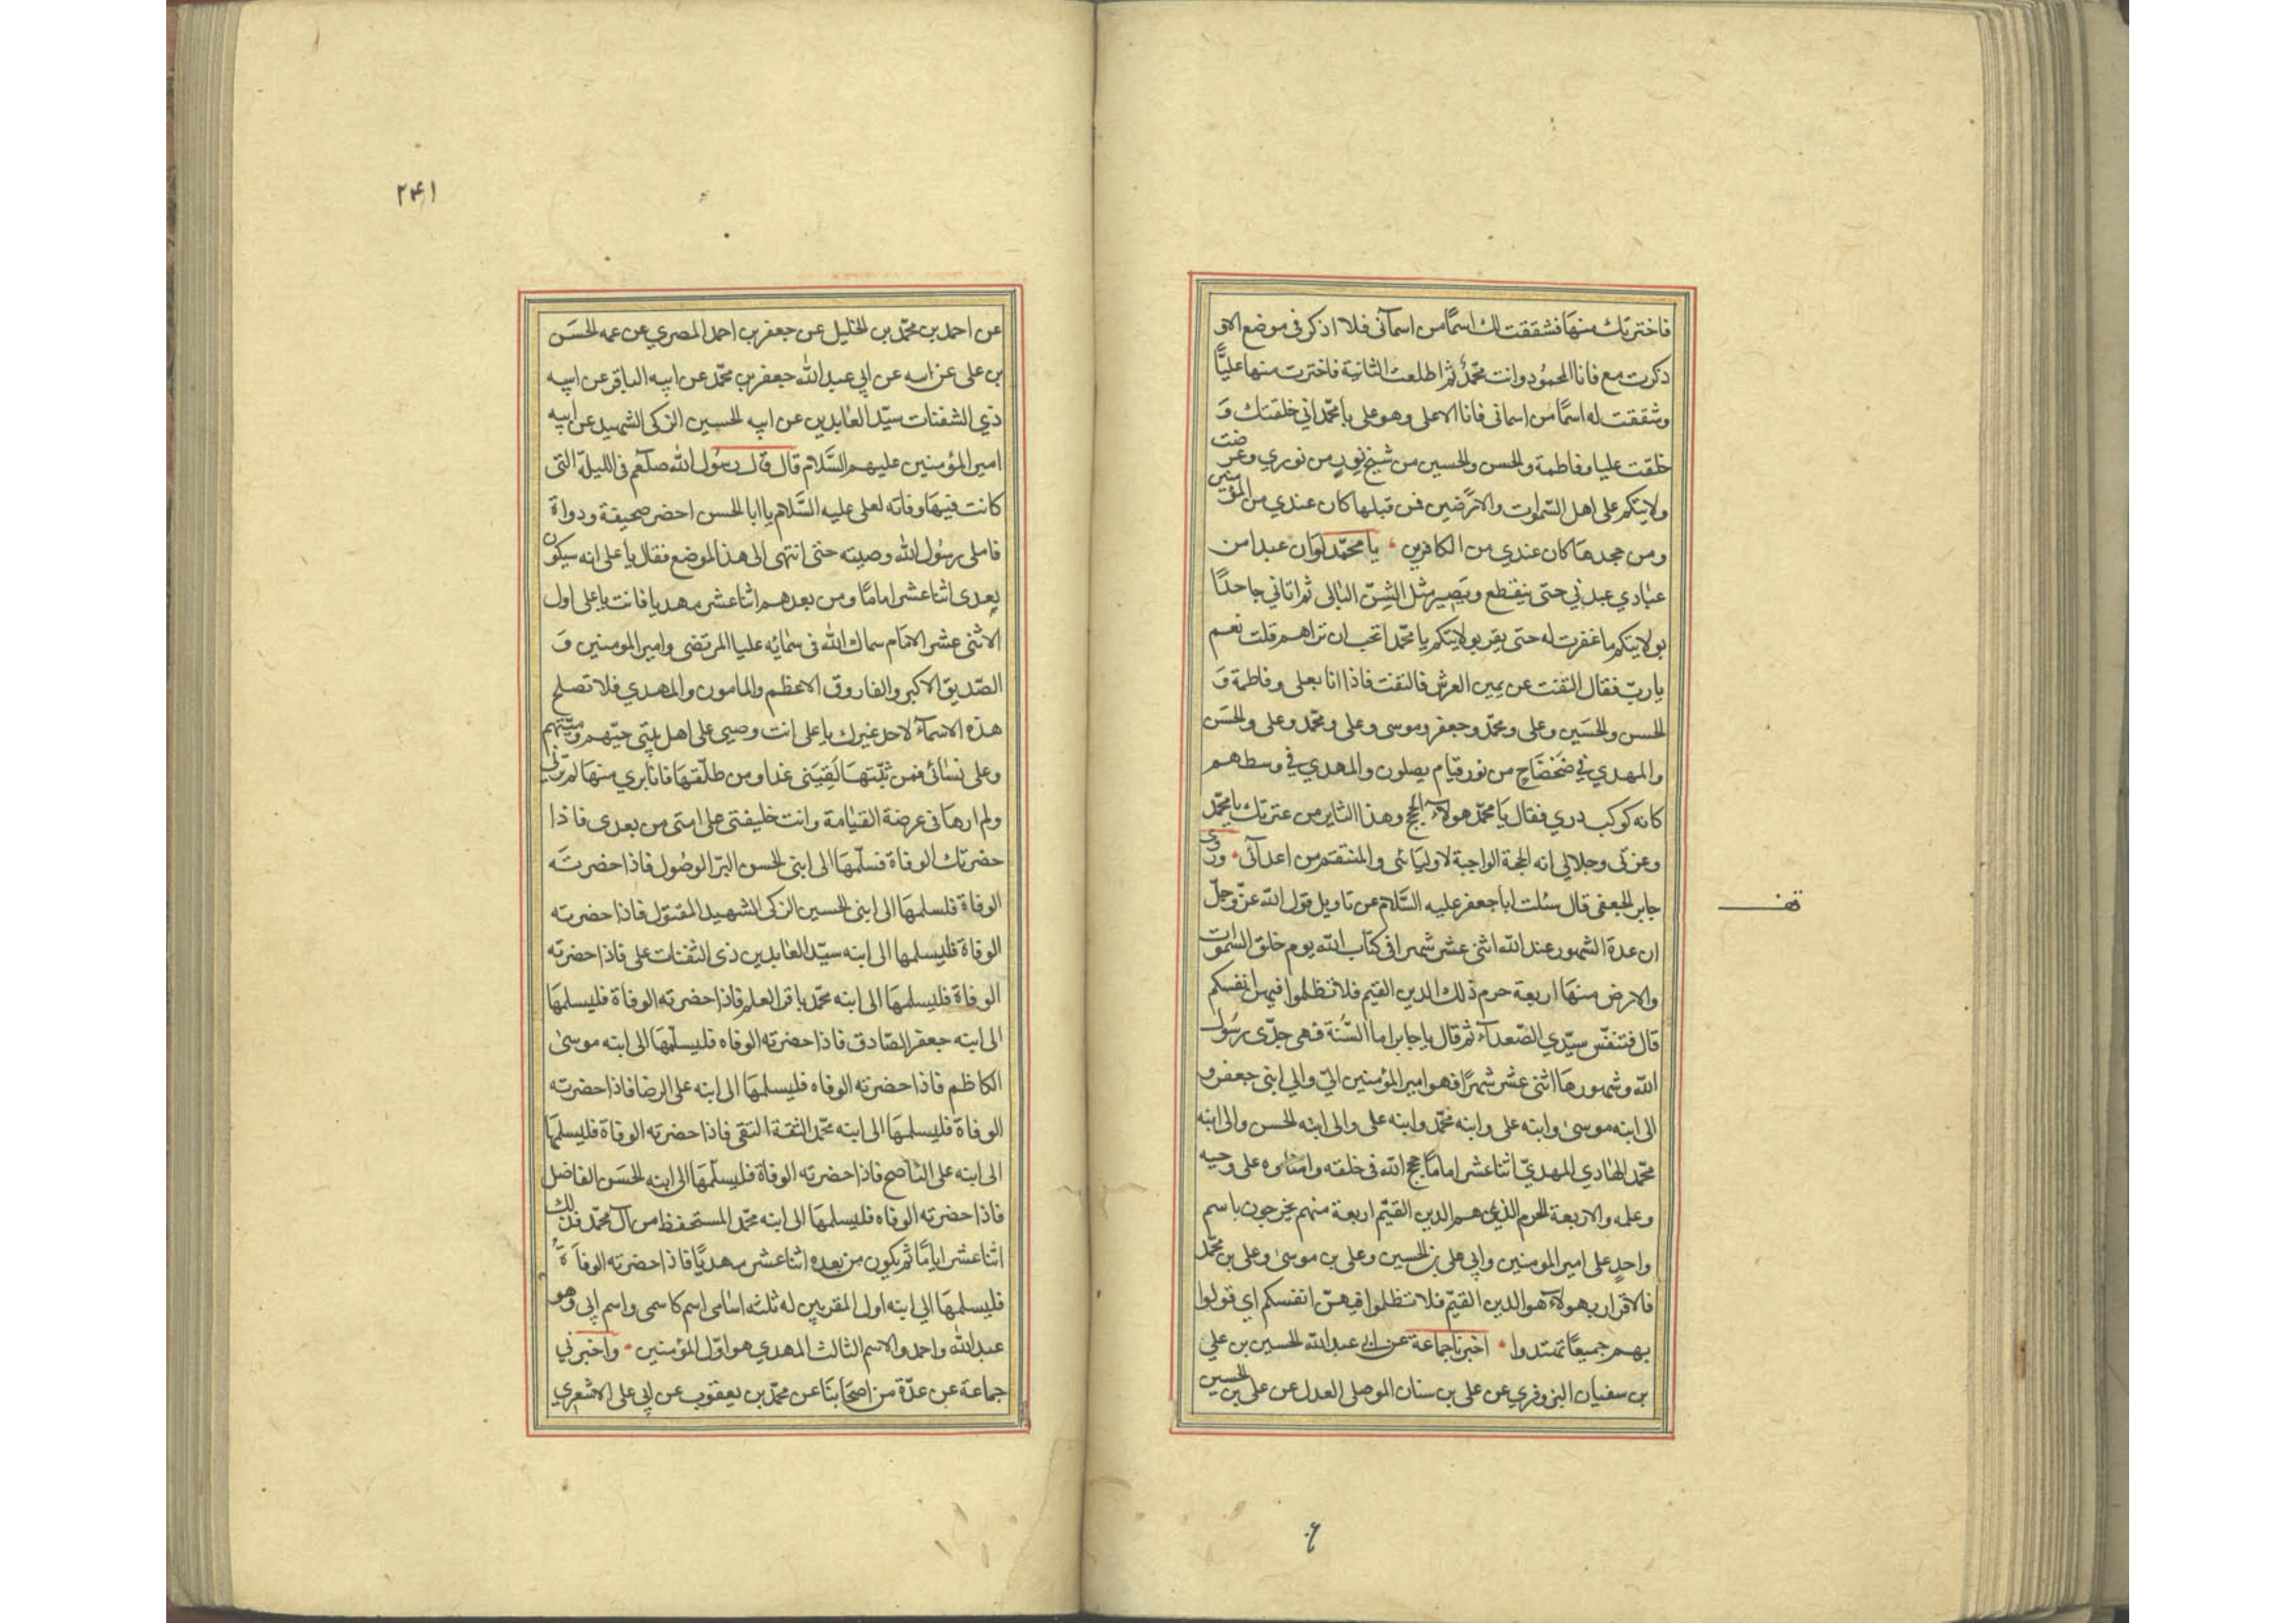 فاخترتك منها فشققت لك اسمًا من اسمآئي فلا اذكر في موضع الا و
ذكرت مع فانا المحمود وانت محمّدٌ ثم اطلعت الثانية فاخترت منها عليًّا
وشققت له اسمًا من اسمائي فانا الاعلى وهو علي يا محمّد اني خلقتك وَ
خلقت عليا وفاطمة والحسن والحسين من شبح نورٍ من نوري وعرضت
ولايتكم على اهل السّموات والارَضين فمن قبلها كان عندي من المؤمنين
ومن جحدها كان عندي من الكافرين ٠ يا محمّد لو ان عبدا من
عبادي عبدني حتى ينقطع ويَصِير مثل الشِنّ البالي ثم اتاني جاحدًا
بولايتكم ما غفرت له حتى يقر بولايتكم يا محمّد اتحب ان تراهم قلت نعم
يا ربّ فقال التفت عن يمين العرش فالتفت فاذا انا بعلى وفاطمة وَ
الحسن والحسَين وعلى ومحمّد وجعفر وموسى وعلى ومحمّد وعلى والحسَن
والمهدي في ضَحضَاحٍ من نور قيام يصلون والمهدي في وسطهم
كانه كوكب دري فقال يا محمّد هولآء الحجج وهذا الثاير من عترتك يا محمّد
وعزتى وجلالي انه الحجة الواجبة لاوليَائى والمنتقم من اعدآئى ٠ وروى
جابر الجعفى قال سئلت ابا جعفر عليه السَّلام عن تاويل قول الله عزّ وجلّ
ان عدة الشهور عند الله اثنى عشر شهرا في كتاب الله يوم خلق السّموات
والارض منها اربعة حرم ذلك الدين القيم فلا تظلموا فيهن انفسكم
قال فتنفّس سيّدي الصّعدآء ثم قال يا جابر اما السّنة فهى جدّى رسُول
الله وشهورها اثنى عشر شهرًا فهو امير المؤمنين اليّ والي ابنى جعفر و
الى ابنه موسىٰ وابنه على وابنه محمّد وابنه على والى ابنه الحسن والى ابنه
محمّد الهادي المهديّ اثنا عشر امامًا حجج الله في خلقه وامناوه على وحيه
وعلمه والاربعة الحرم الذين هم الدين القيّم اربعة منهم يخرجون باسم
واحدٍ على امير المومنين وابي على بن الحسين وعلى بن موسىٰ وعلى بن محمّد
فالاقرار بهولآء هو الدين القيّم فلا تظلموا فيهنّ انفسكم اي قولوا
بهم جميعًا تهتدوا ٠ اخبرنا جماعة عن ابي عبد الله الحسين بن علي
بن سفيان البزوفري عن على بن سنان الموصلى العدل عن على بن الحسين
۲۴۱
عن احمد بن محمّد بن الخليل عن جعفر بن احمد المصري عن عمه الحسَن
بن على عن ابيه عن ابي عبد الله جعفر بن محمّد عن ابيه الباقر عن ابيه
ذي الثفنات سيّد العابدين عن ابيه الحسين الزكى الشهيد عن ابيه
امير المؤمنين عليهم السَّلام قال قال رسُول الله صلعم في الليلة التى
كانت فيها وفاته لعلى عليه السَّلام يا ابا الحسن احضر صحيفة ودواة
فاملى رسُول الله وصيته حتى انتهى الى هذا الموضع فقال يا على انه سيكون
بعدى اثنا عشر امامًا ومن بعدهم اثنا عشر مهديا فانت يا على اول
الاثنى عشر الامَام سماك الله فى سمايه عليا المرتضى وامير المومنين وَ
الصّديق الاكبر والفاروق الاعظم والمامون والمهدي فلا تصلح
هذه الاسمآء لاحد غيرك يا على انت وصيى على اهل بيتى حيّهم وميّتهم
وعلى نسائى فمن ثبّتها لَقِيَتنى غدا ومن طلّقتها فانا بري منها لم ترنى
ولم ارها فى عرصة القيامة وانت خليفتى على امتى من بعدى فاذا
حضرتك الوفاة فسلّمها الى ابنى الحسن البرّ الوصُول فاذا حضرتَه
الوفاة فلسلمها الى ابنى الحسين الزكى الشهيد المقتول فاذا حضرته
الوفاة فليسلمها الى ابنه سيّد العابدين ذى الثفنات على فاذا حضرته
الوفاة فليسلمها الى ابنه محمّد باقر العلم فاذا حضرته الوفاة فليسلمها
الى ابنه جعفر الصّادق فاذا حضرته الوفاه فليسلّمها الى ابنه موسىٰ
الكاظم فاذا حضرته الوفاه فليسلمها الى ابنه على الرضا فاذا حضرته
الوفاة فليسلمها الى ابنه محمّد الثقة التقى فاذا حضرته الوفاة فليسلمها
الى ابنه على الناصح فاذا حضرته الوفاة فليسلّمها الى ابنه الحسَن الفاضل
فاذا حضرته الوفاه فليسلمها الى ابنه محمّد المستحفظ من آل محمّد فذلك
اثنا عشر امامًا ثم يكون من بعده اثنا عشر مهديًا فاذا حضرته الوفاة
فليسلمها الي ابنه اول المقربين له ثلثه اسامى اسم كاسمى واسم ابي وهو
عبد الله واحمد والاسم الثالث المهدي هو اوّل المؤمنين ٠ واخبرني
جماعة عن عدّة من اصحابنا عن محمّد بن يعقوب عن ابي على الاشعري